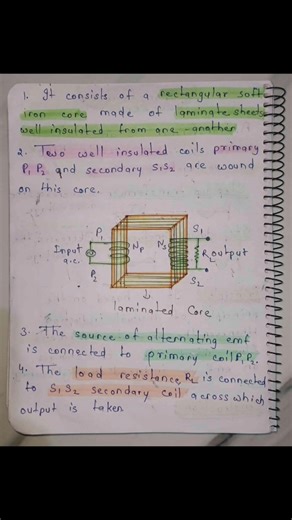 1. It consists of a rectangular soft
iron core made of laminate sheets
well insulated from one-another
2. Two well insulated coils primary
P1 P2 and secondary S1S2 are wound
on this core.
P1 S1
Input Np Ns RL output
a.c.
P2 S2
laminated Core
3. The source of alternating emf
is connected to primary coil P1 P2.
4. The load resistance RL is connected
to S1S2 secondary coil across which
output is taken